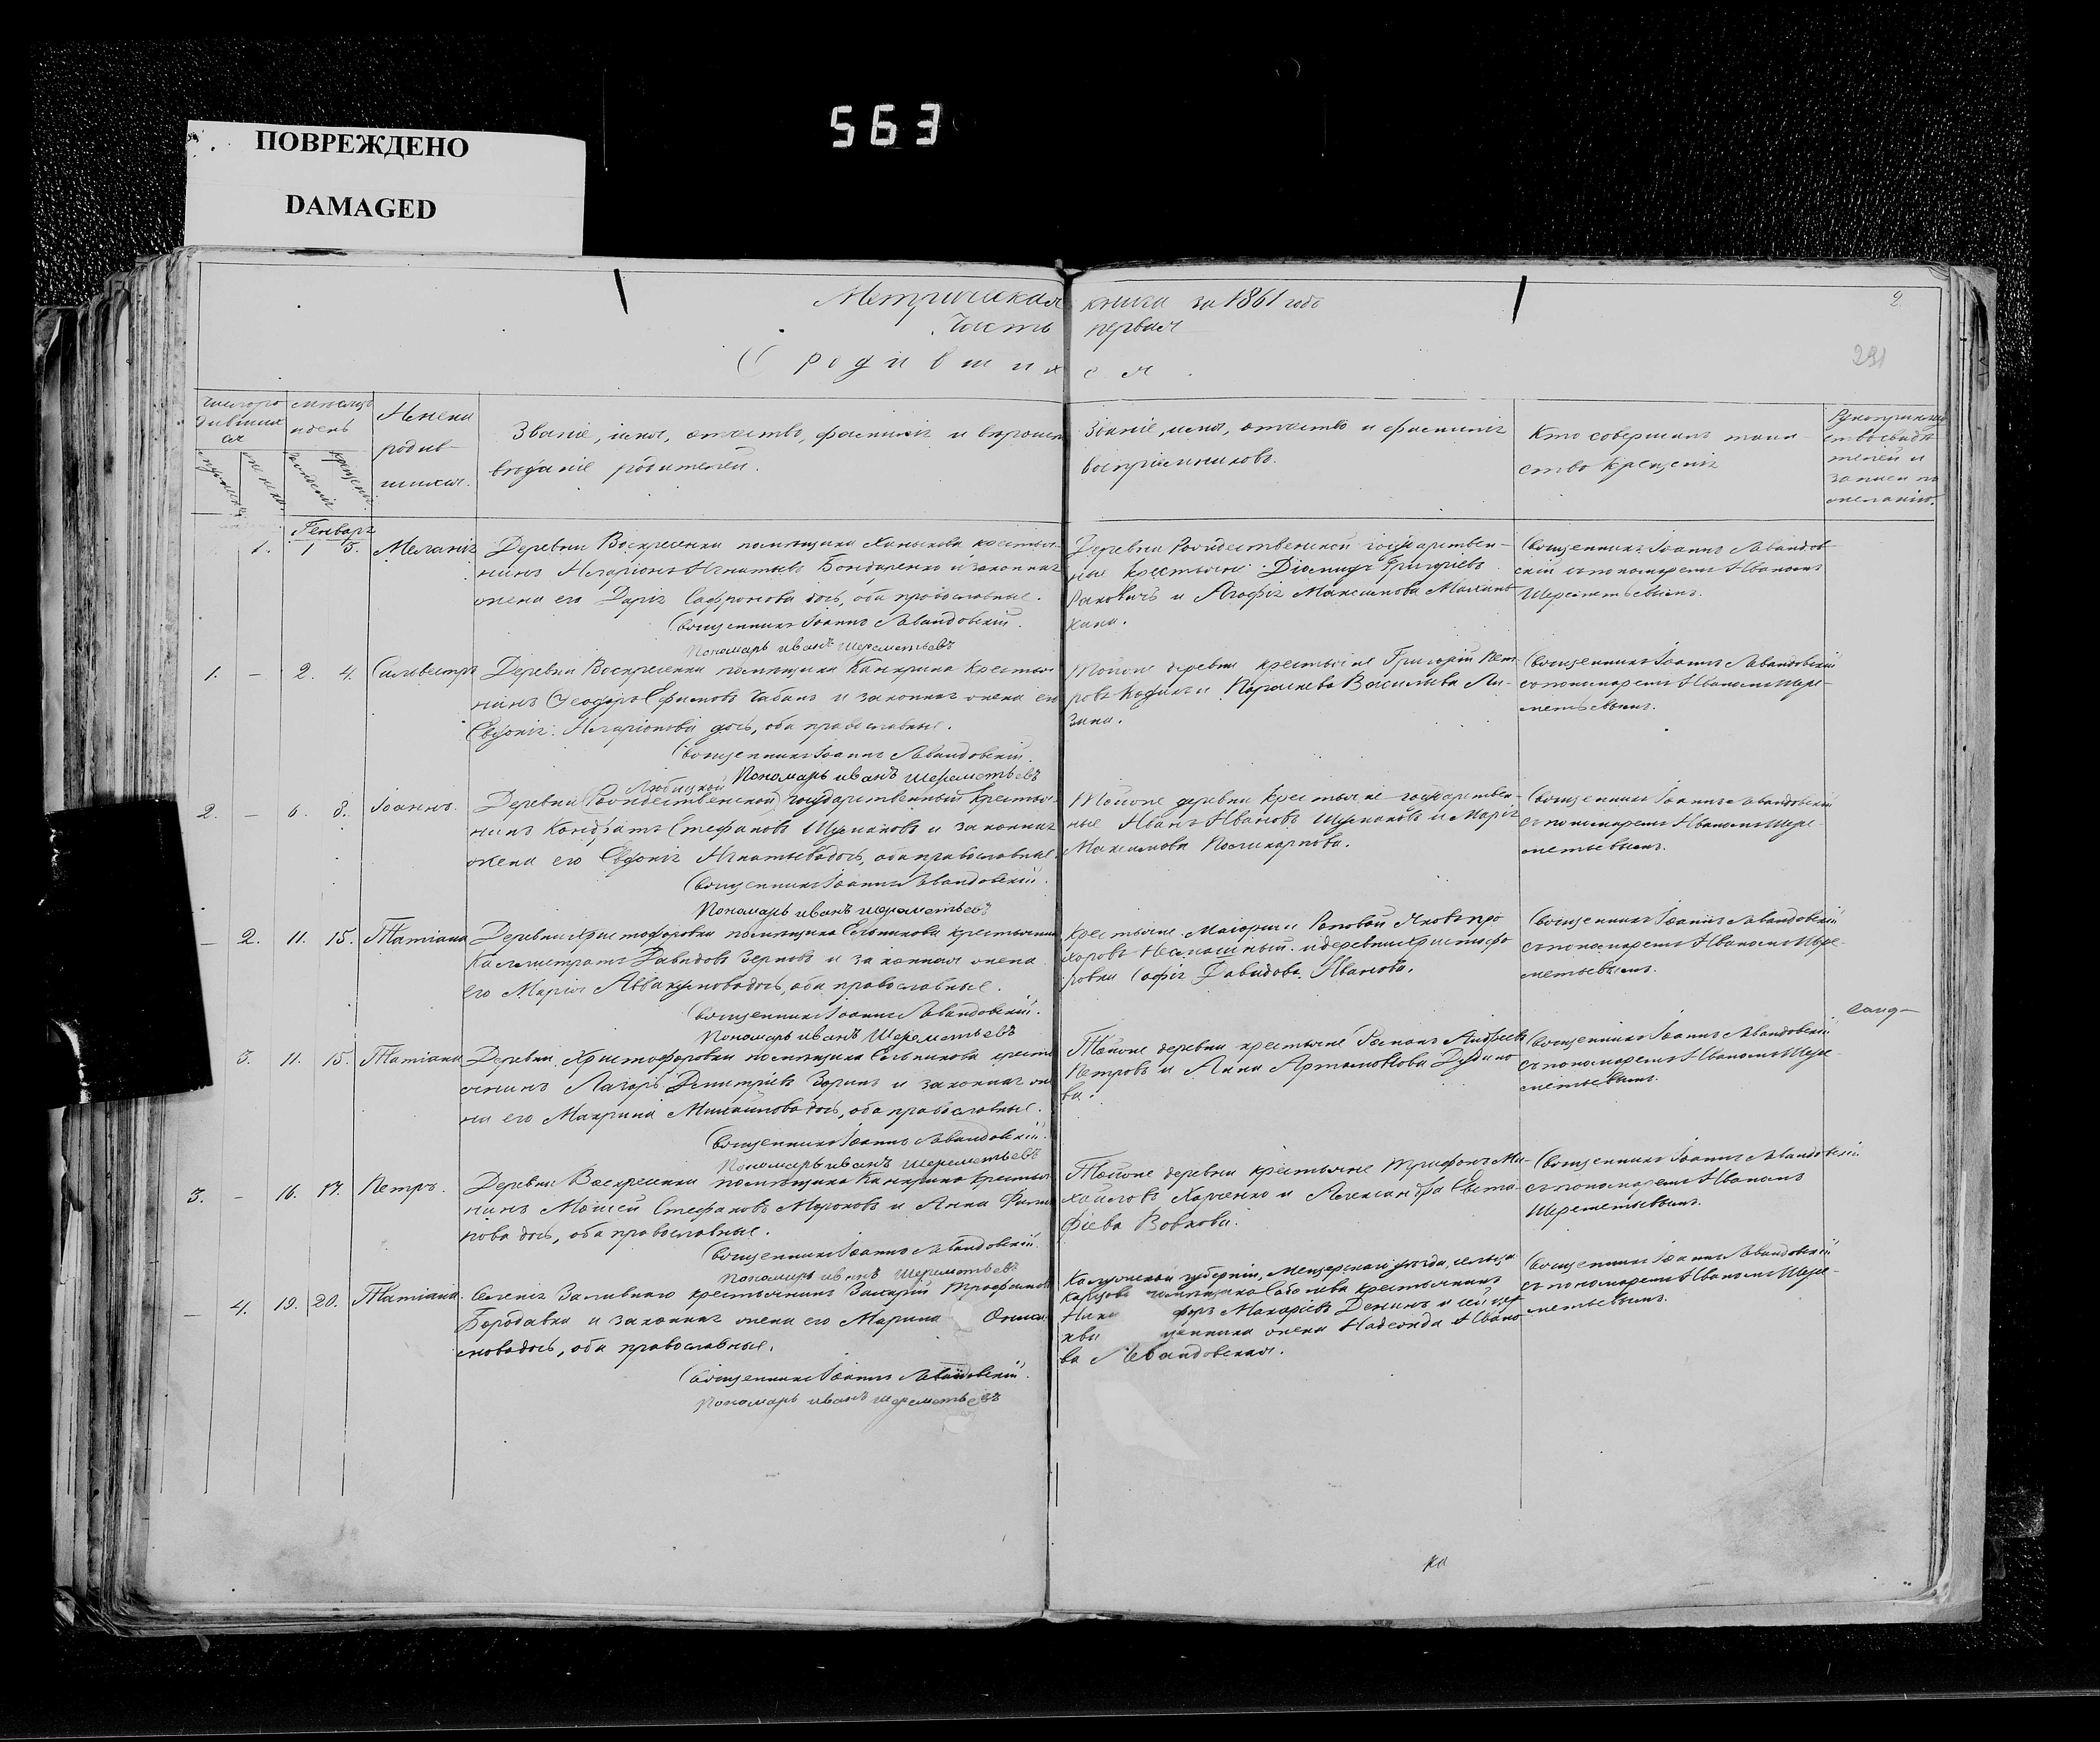 563
ПОВРЕЖДЕНО
DAMAGED
Метрическая книга за 1861 годъ
2
Часть первая
291
О родившихся
Имена
родив-
шихся.
Званіе, имя, отчество, фамилія и вѣроис-
вѣданіе родителей.
Званіе, имя, отчество и фамилія
воспріемниковъ.
Кто совершалъ таин-
ство крещенія
Рукоприклад
ство свидѣ
телей и
записи по
желанію.
Генварь
1. 1 3. Меланія
Деревни Воскресенки помѣщика Ханыкова крестья-
нинъ Иларіонъ Игнатьевъ Бондаренко и законная
жена его Дарія Сафронова дочь, оба православные.
Священникъ Іоаннъ Левандовскій.
Пономарь иванъ шереметьевъ
Деревни Рождественской государствен-
ные крестьяне Діомидъ Григоріевъ
и Агафія Максимова
Священникъ Іоаннъ Левандов
скій съ пономаремъ Иваномъ
Шереметьевымъ.
1. – 2. 4. Силвестръ
Деревни Воскресенки помѣщика Канкрина крестья-
нинъ Ѳеодоръ Ефимовъ Чабанъ и законная жена его
Евдокія Иларіонова дочь, оба православные.
Священникъ Іоаннъ Левандовскій.
Пономарь иванъ шереметьевъ
Тойоже деревни крестьяне Григорій Пет-
ровъ и Параскева Василиева Ли-
зина.
Священникъ Іоаннъ Левандовскій
съ пономаремъ Иваномъ Шере-
метьевымъ.
2. – 6. 8. Іоаннъ.
Деревни (Рождественской) государственный крестья-
нинъ Кондратъ Стефановъ Шумаковъ и законная
жена его Евдокія Игнатьева дочь, оба православные.
Священникъ Іоаннъ Левандовскій.
Пономарь иванъ шереметьевъ
Тойоже деревни крестьяне государствен-
ные Иванъ Ивановъ Шумаковъ и Марія
Максимова Поликарпова.
Священникъ Іоаннъ Левандовскій
съ пономаремъ Иваномъ Шере-
метьевымъ.
– 2. 11. 15. Татіана
Деревни Христофоровки помѣщика Ельникова крестьянинъ
Каллистратъ Давидовъ Зерновъ и законная жена
его Марія Аввакумова дочь, оба православные.
Священникъ Іоаннъ Левандовскій.
Пономарь иванъ Шереметьевъ
крестьяне Маіорши Роповой Яковъ Про
хоровъ и деревни Христофо
ровки Софія Давидова Иванова.
Священникъ Іоаннъ Левандовскій
съ пономаремъ Иваномъ Шере-
метьевымъ.
3. 11. 15. Татіана
Деревни Христофоровки помѣщика Ельникова кресть
янинъ Лазарь Димитріевъ Зоринъ и законная же
на его Макрина Михайлова дочь, оба православные.
Священникъ Іоаннъ Левандовскій.
Пономарь иванъ шереметьевъ
Тойоже деревни крестьяне Романъ Андреевъ
Петровъ и Анна Артамонова
ва.
Священникъ Іоаннъ Левандовскій
съ пономаремъ Иваномъ Шере-
метьевымъ.
3. – 16. 17. Петръ.
Деревни Воскресенки помѣщика Канкрина крестья
нинъ Моисей Стефановъ Морозовъ и Анна Филип
пова дочь, оба православные.
Священникъ Іоаннъ Левандовскій.
Пономарь иванъ шереметьевъ
Тойоже деревни крестьяне Трифонъ Ми-
хайловъ Харченко и Александра Евста-
фіева Вовкова.
Священникъ Іоаннъ Левандовскій
съ пономаремъ Иваномъ
Шереметьевымъ.
– 4. 19. 20. Татіана.
Селенія Заливнаго крестьянинъ Захарій Трофимовъ
Бородавка и законная жена его Марина Они
симова дочь, оба православные.
Священникъ Іоаннъ Левандовскій.
Пономарь иванъ шереметьевъ
Калужской губерніи, уѣзда, сельца
помѣщика Соболева крестьянинъ
Ники форъ Макаріевъ Деминъ и
жена Надежда Ивано
ва Левандовская.
Священникъ Іоаннъ Левандовскій
съ пономаремъ Иваномъ Шере-
метьевымъ.